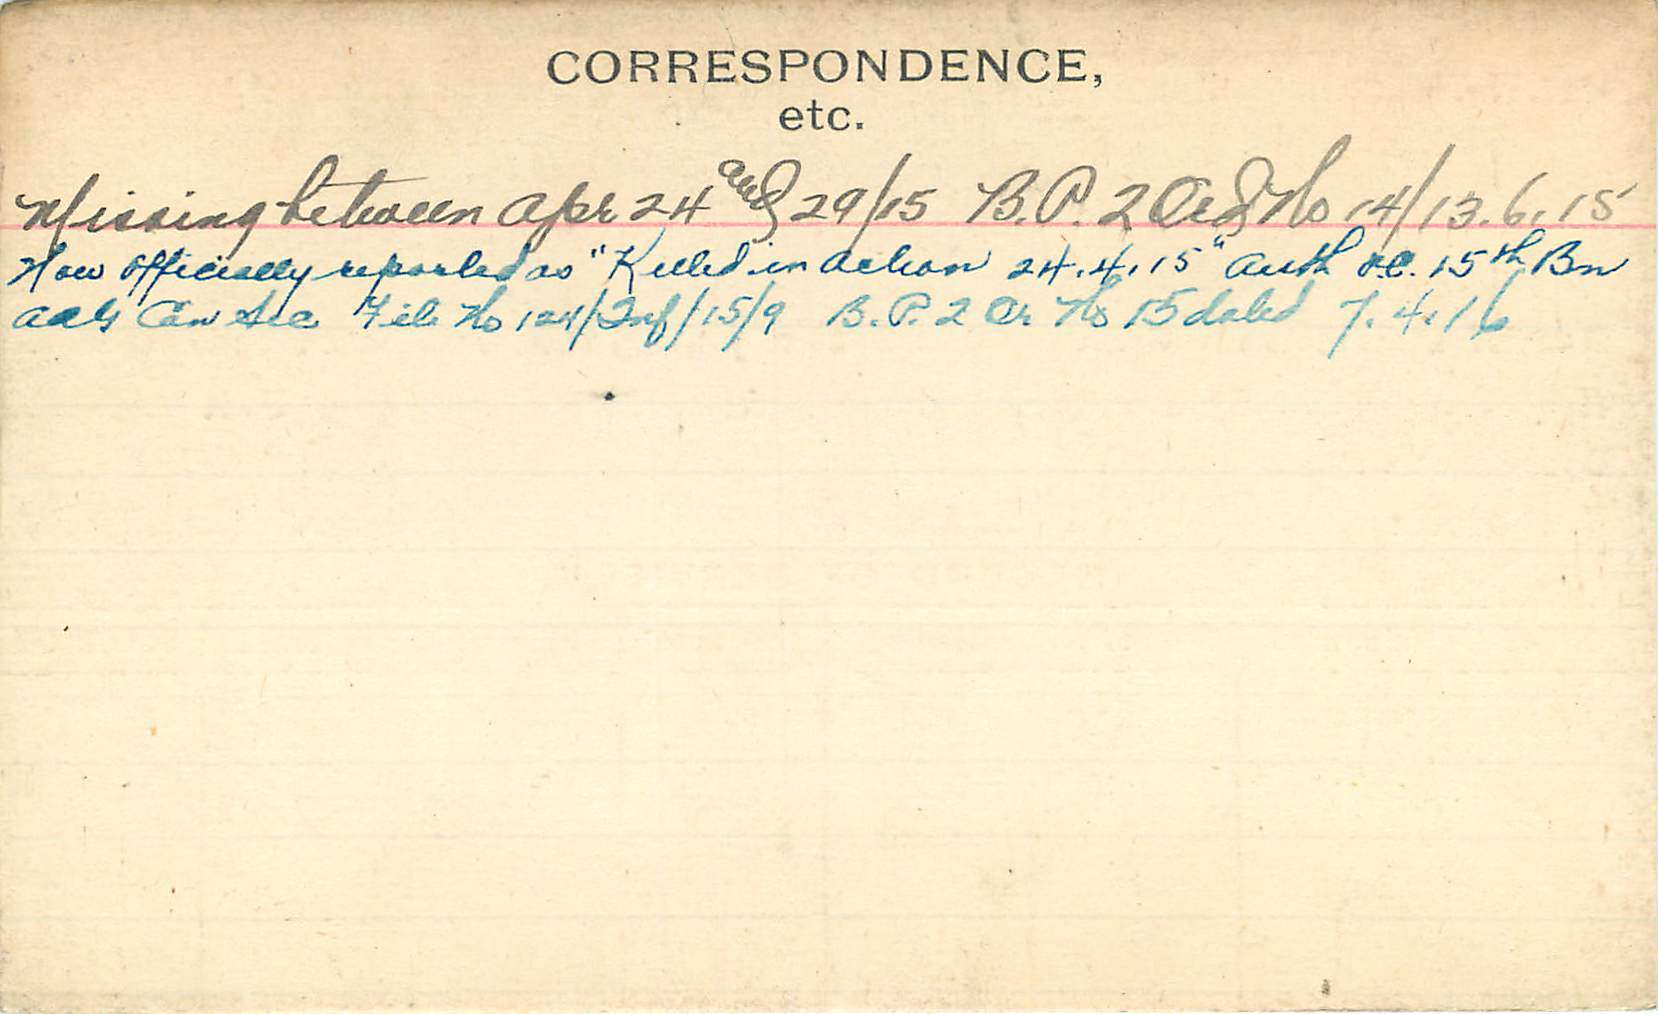 CORRESPONDENCE,
etc.
Missing between Apr 24 and 29/15 B.P. 2 Ord No 14/13.6.15
Now officially reported as "Killed in action 24.4.15" Auth O.C. 15th Bn
AAG Can Sec File No 124/Inf/15/9 B.P. 2 Or No 15 dated 7.4.16